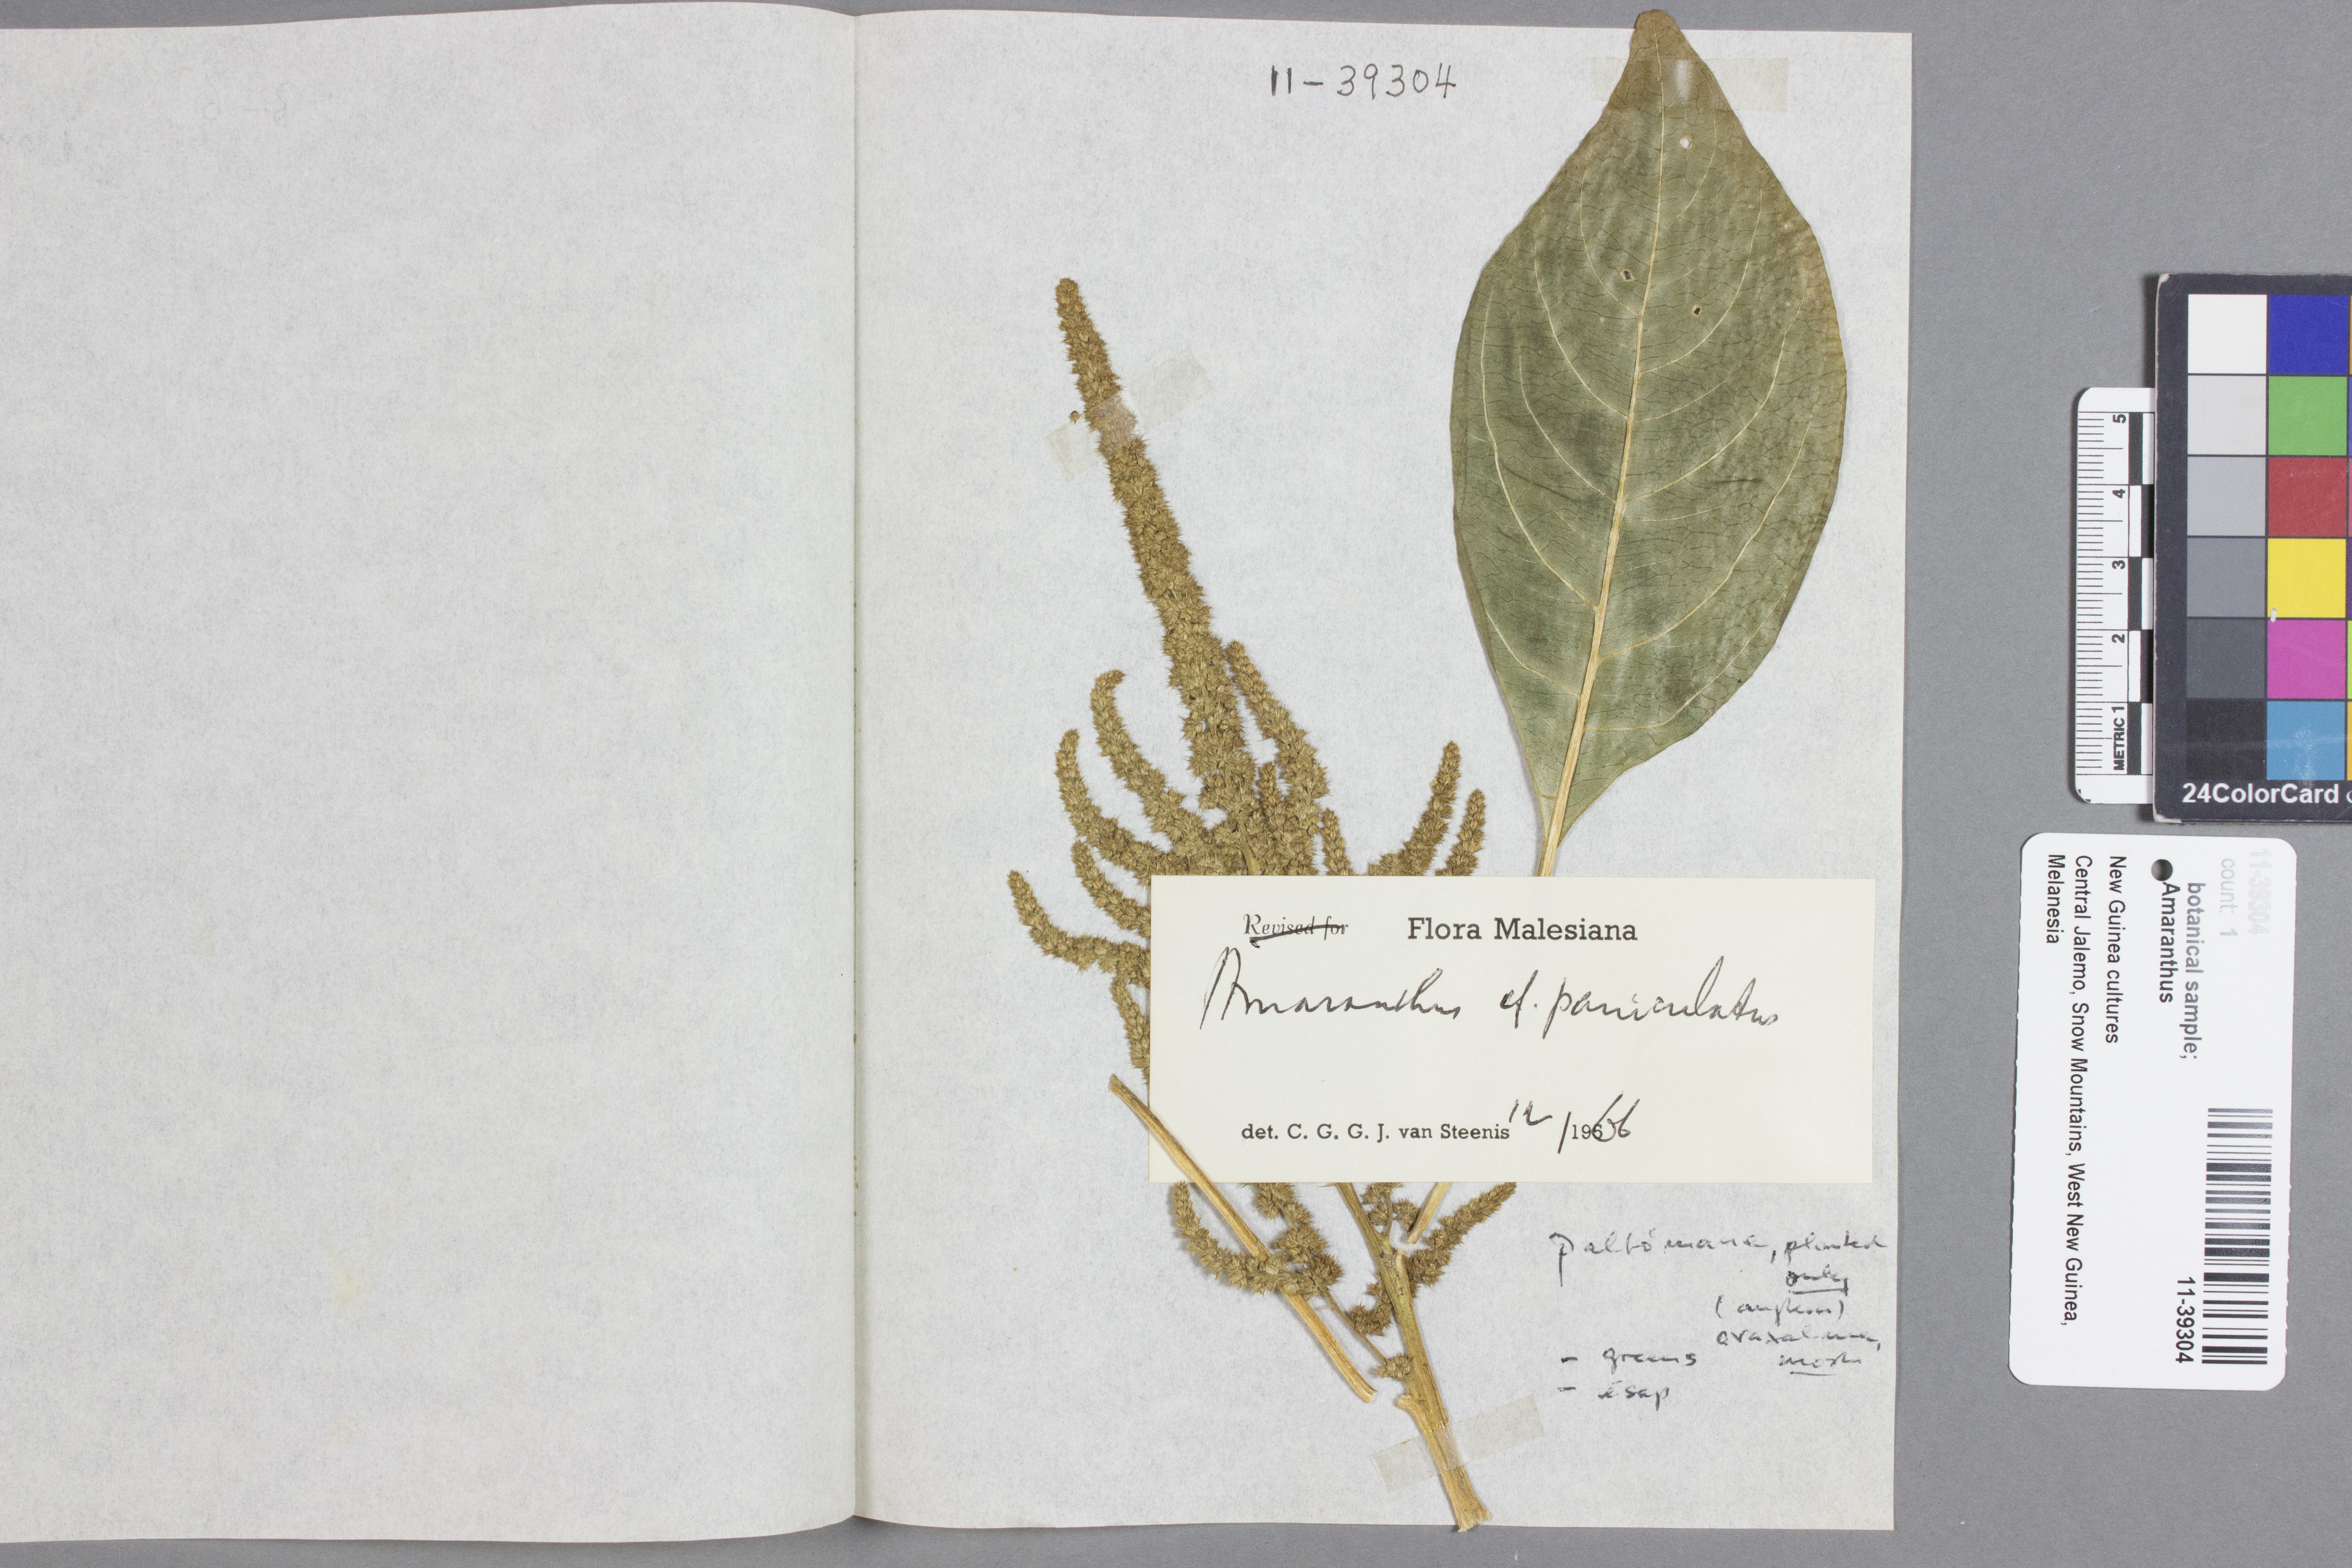 11-39304
Revised for Flora Malesiana
Amaranthus cf. paniculatus
det. C. G. G. J. van Steenis 12/1966
planted
only
- greens
- ésap
5
4
3
2
METRIC 1
24ColorCard
11-39304
count: 1
botanical sample;
Amaranthus
New Guinea cultures
Central Jalemo, Snow Mountains, West New Guinea,
Melanesia
11-39304